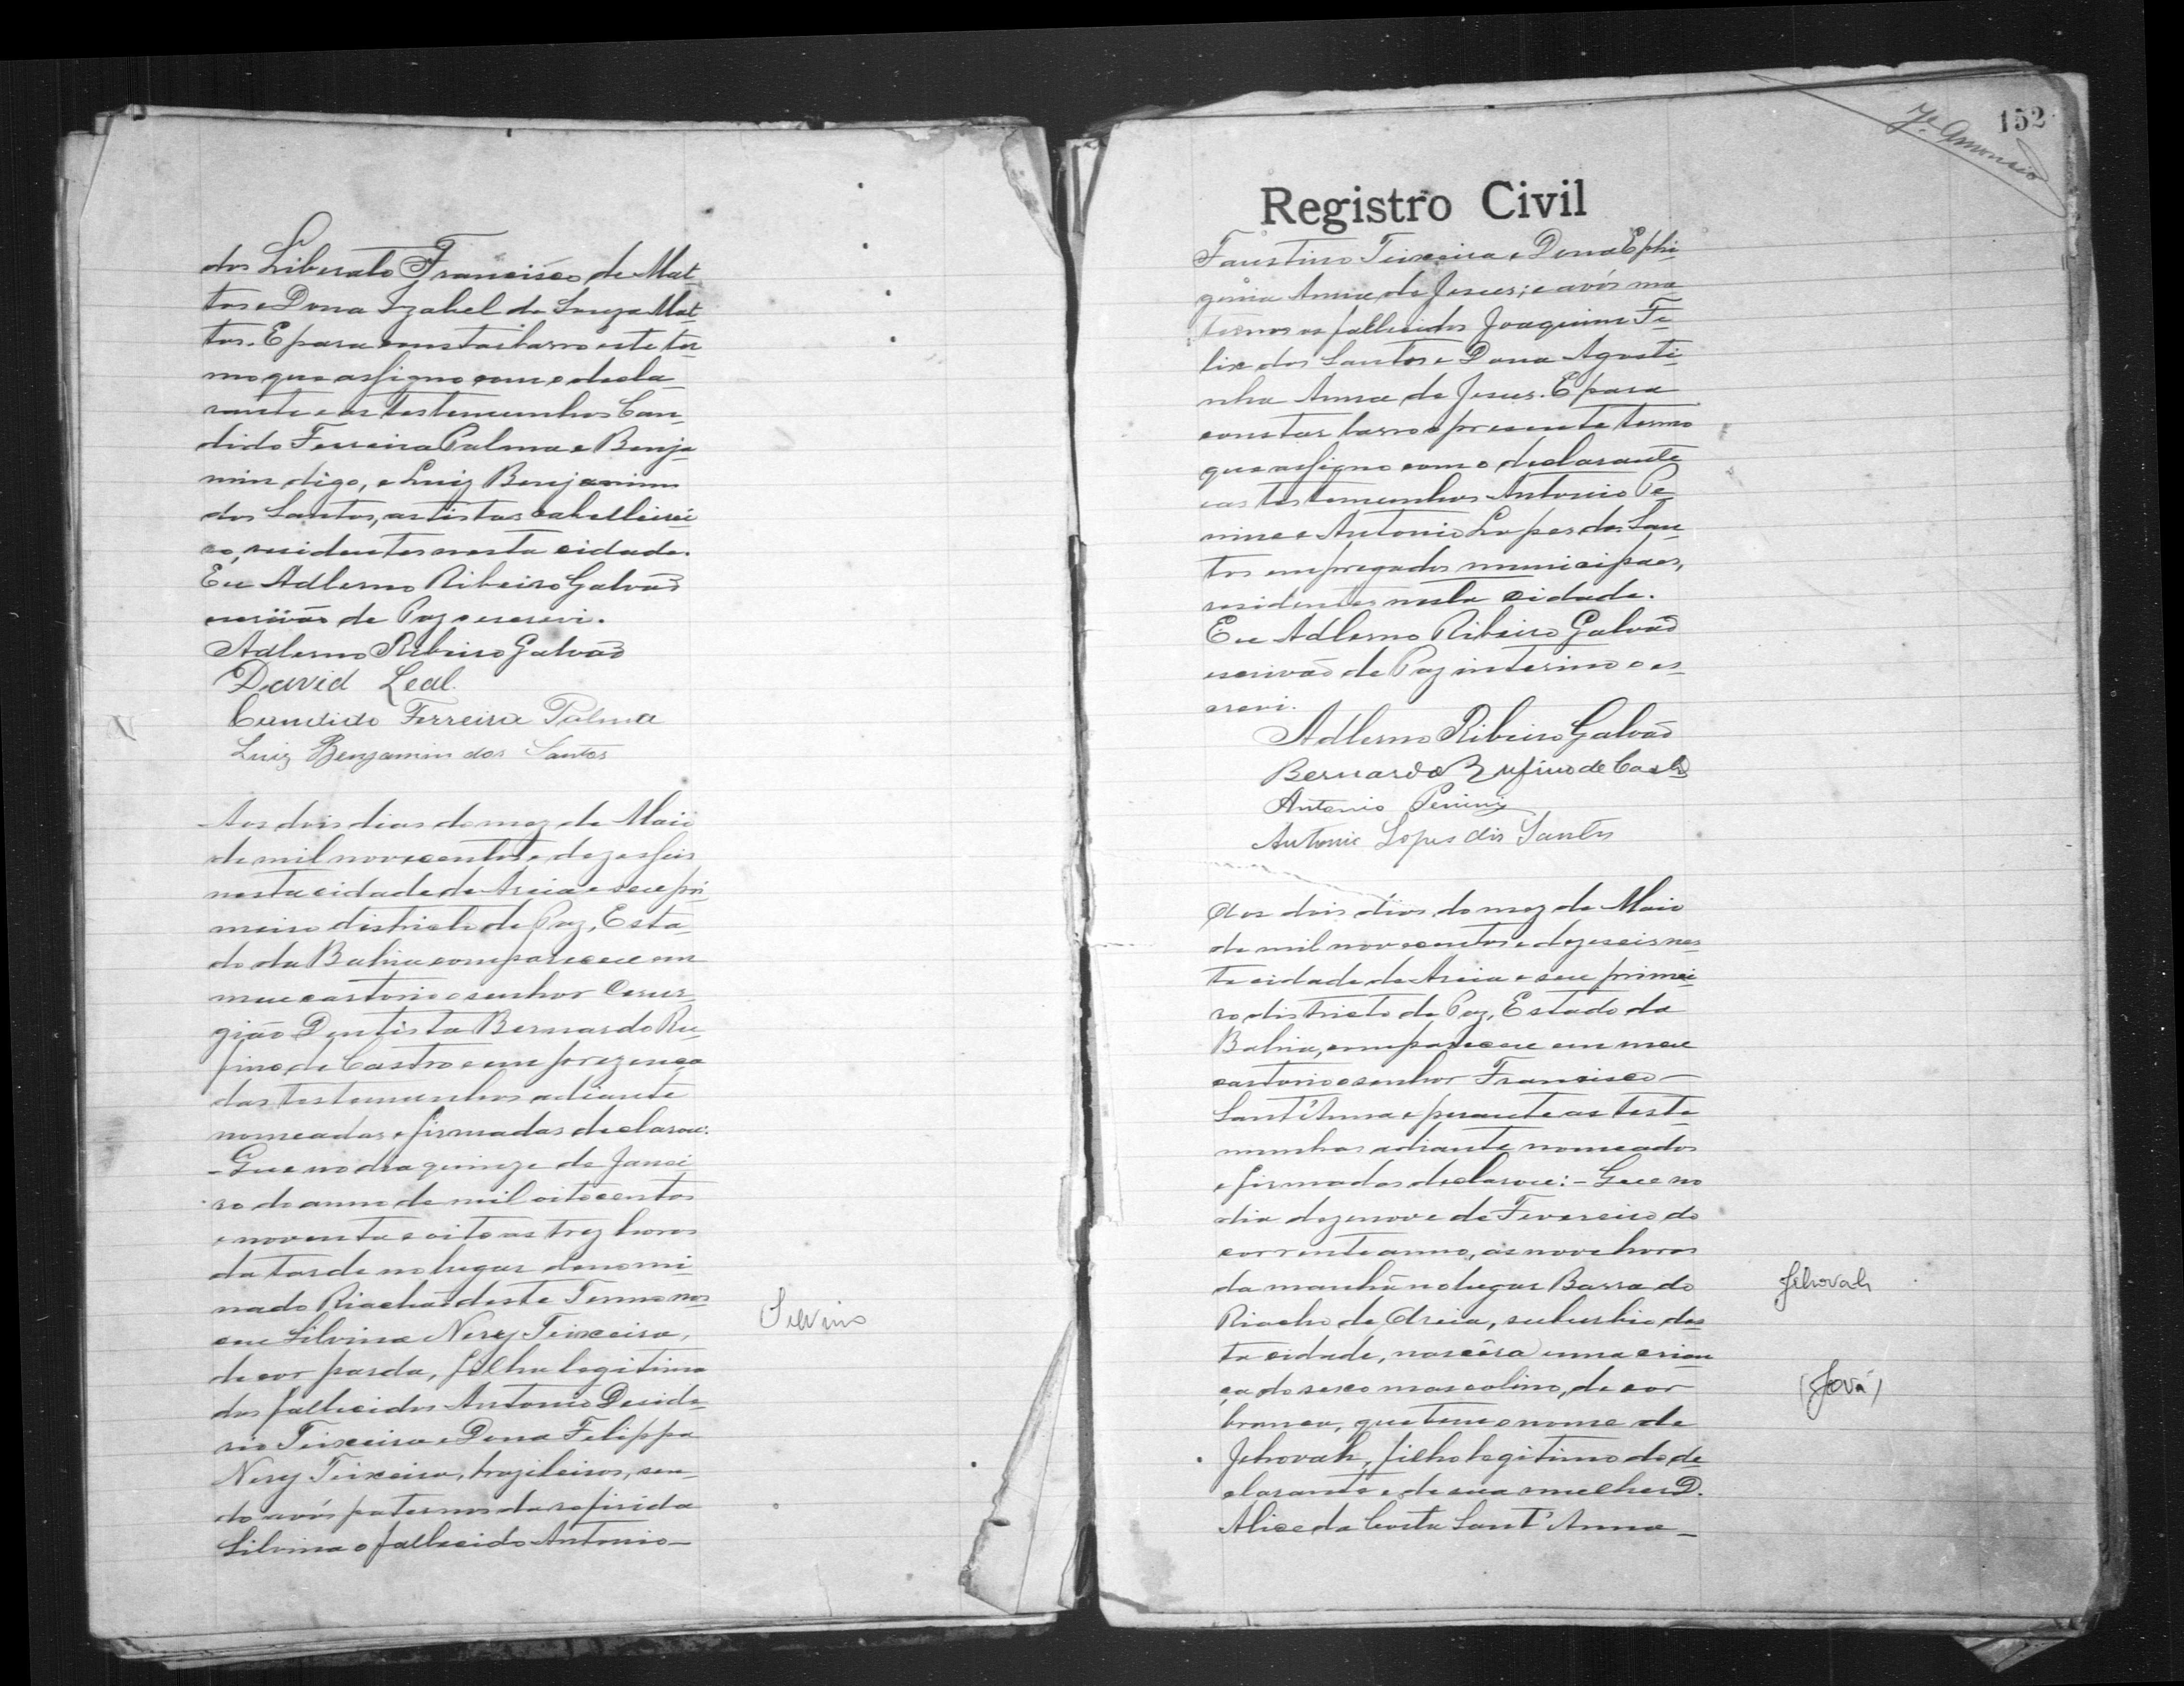 dos Liberato Francisco de Mat_
tos e Dona Izabel de Souza Mat_
tos. E para constar lavro este ter_
mo que assigno com o decla_
rante e as testemunhas Can_
dido Ferreira Palma e Benja_
min digo, e Luiz Benjamim
dos Santos, artistas cabelleirei
ro, residentes nesta cidade.
Eu Adlerno Ribeiro Galvão
escrivão de Paz o escrevi.
Adlerno Ribeiro Galvão
David Leal.
Candido Ferreira Palma
Luiz Benjamin dos Santos
Aos dois dias do mez de Maio
de mil novecentos e dezesseis
nesta cidade de Areia e seu pri_
meiro districto de Paz, Esta_
do da Bahia compareceu em
meu cartorio o senhor Cerur_
gião Dentista Bernardo Ru_
fino de Castro e em prezença
das testemunhas adiante
nomeadas e firmadas declarou:
- Que no dia quinze de Janei_
ro do anno de mil oitocentos
e noventa e oito as trez horas
da tarde no lugar denomi_
nado Riachão deste Termo nas_
ceu Silvina Nery Teixeira,
de cor parda, filha legitima
dos fallecidos Antonio Deside_
rio Teixeira e Dona Felippa
Nery Teixeira, brazileiros, sen_
do avós paternos da referida
Silvina o fallecido Antonio_
Silvina
152
Registro Civil
Faustino Teixeira e Dona Ephi_
genia Anna de Jesus; e avós ma_
ternos os fallecidos Joaquim Fe_
lix dos Santos e Dona Agosti_
nha Anna de Jesus. E para
constar lavro o presente termo
que assigno com o declarante
e as testemunhas Antonio Pe_
nine e Antonio Lopes dos San_
tos empregados municipaes,
residentes nesta cidade.
Eu Adlerno Ribeiro Galvão
escrivão de Paz interino o es_
crevi.
Adlerno Ribeiro Galvão
Bernardo Rufino de Castro
Antonio Penini
Antonio Lopes dos Santos
Aos dois dias do mez de Maio
de mil novecentos e dezeseis nes_
ta cidade de Areia e seu primei_
ro districto de Paz, Estado da
Bahia, compareceu em meu
cartorio o senhor Francisco_
Sant'Anna e perante as teste_
munhas adiante nomeadas
e firmadas declarou: - Que no
dia dezenove de Fevereiro do
corrente anno, as nove horas
da manhã no lugar Barra do
Riacho de Areia, suburbio des_
ta cidade, nascêra uma crian_
ça do sexo mascolino, de cor
branca, que tem o nome de
Jehovah, filho legitimo do de_
clarante e de sua mulher D.
Alice da Costa Sant'Anna_
Jehovah
(Jová)